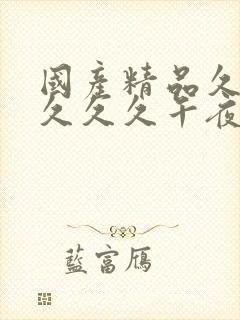 國產精品久
久久久午夜
藍富鴈